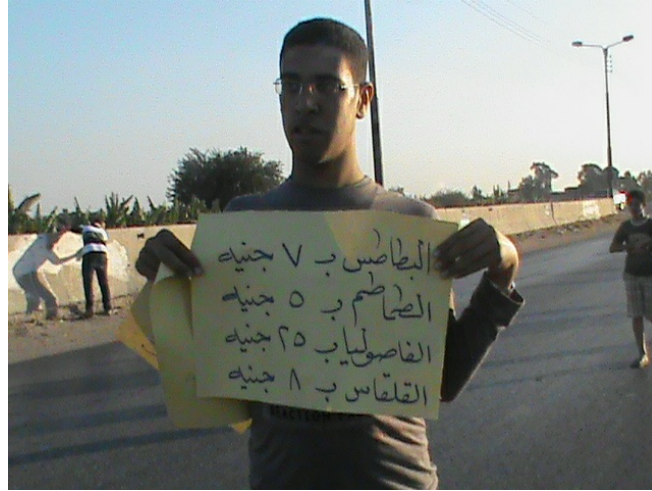 البطاطس ب ٧ جنيه
الطماطم ب ٥ جنيه
الفاصوليا ب ٢٥ جنيه
القلقاس ب ٨ جنيه